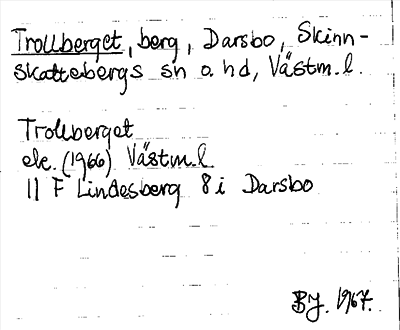 Trollberget, berg, Darsbo, Skinn-
skattebergs sn o hd, Västm. l.
Trollberget
ek. (1966) Västm. l
11 F Lindesberg 8 i Darsbo
BJ. 1967.